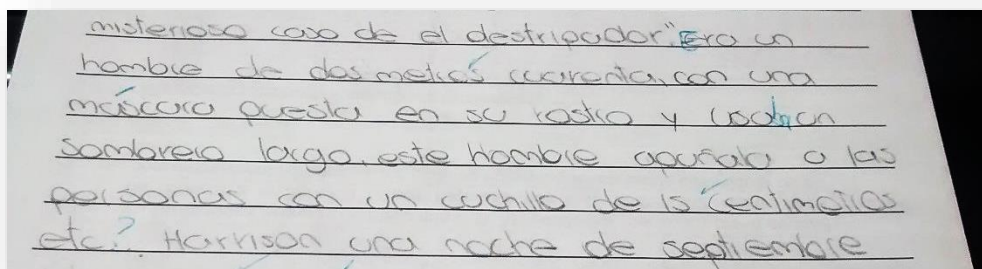 misterioso caso de el destripador". Era un
hombre de dos metros cuarenta, con una
máscara puesta en su rostro y usaba un
sombrero largo, este hombre apuñala a las
personas con un cuchillo de 15 centimetros
etc.? Harrison una noche de septiembre